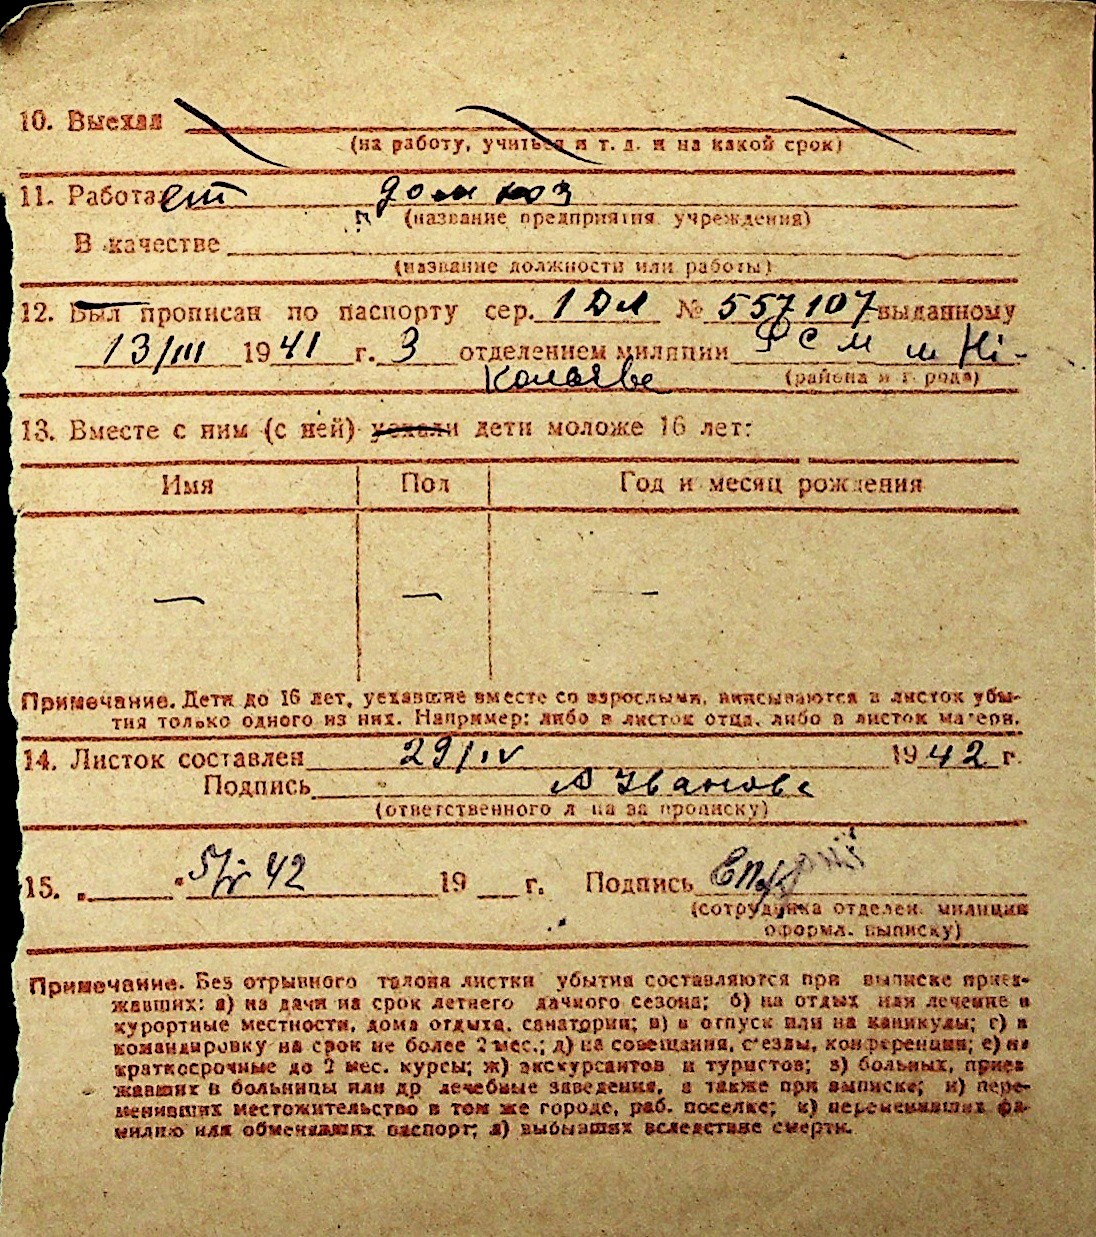 10. Выехал
(на работу, учиться и т. д. и на какой срок)
11. Работает дом хоз
(название предприятия учреждения)
В качестве
(название должности или работы)
12. Был прописан по паспорту сер. 1 Дл № 557107 выданному
13/III 1941 г. 3 отделением милиции РСМ
(района и города)
13. Вместе с ним (с ней) уехали дети моложе 16 лет:
Имя Пол Год и месяц рождения
— — —
Примечание. Дети до 16 лет, уехавшие вместе со взрослыми, вписываются в листок убы-
тия только одного из них. Например: либо в листок отца, либо в листок матери.
14. Листок составлен 29/IV 1942 г.
Подпись А Иванова
(ответственного лица за прописку)
15. „ " 5/V 42 19 г. Подпись
(сотрудника отделен. милиции
оформл. выписку)
Примечание. Без отрывного талона листки убытия составляются при выписке приез-
жавших: а) на дачи на срок летнего дачного сезона; б) на отдых или лечение в
курортные местности, дома отдыха, санатории; в) в отпуск или на каникулы; г) в
командировку на срок не более 2 мес.; д) на совещания, с'езды, конференции; е) на
краткосрочные до 2 мес. курсы; ж) экскурсантов и туристов; з) больных, приез
жавших в больницы или др лечебные заведения, а также при выписке; и) пере-
менивших местожительство в том же городе, раб. поселке; к) переменивших фа-
милию или обменявших паспорт; л) выбывших вследствие смерти.